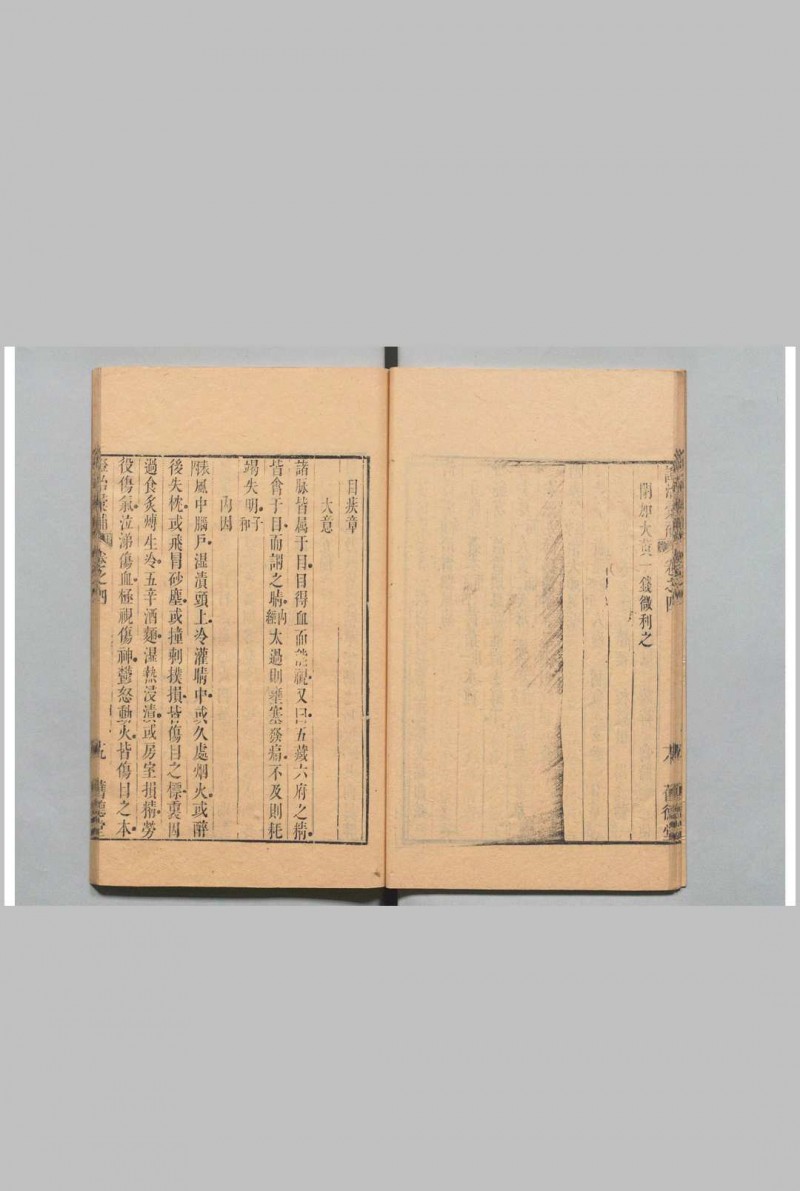 閉加大黃一錢微利之
卷之四
目疾章
大意
諸脉皆属于目目得血而能視又曰五藏六府之精
皆貪于目而謂之睛內經太過則壅塞發痛不及則耗
竭失明子和
內因
風中腦戶濕漬頭上冷灌睛中或久處烟火或醉
後失枕或飛冒砂塵或撞刺撲損皆傷目之標
過食炙煿生冷五辛酒麵濕熱浸漬或房室損精勞
役傷氣泣涕傷血極視傷神鬱怒動火皆傷目之本
卷之四